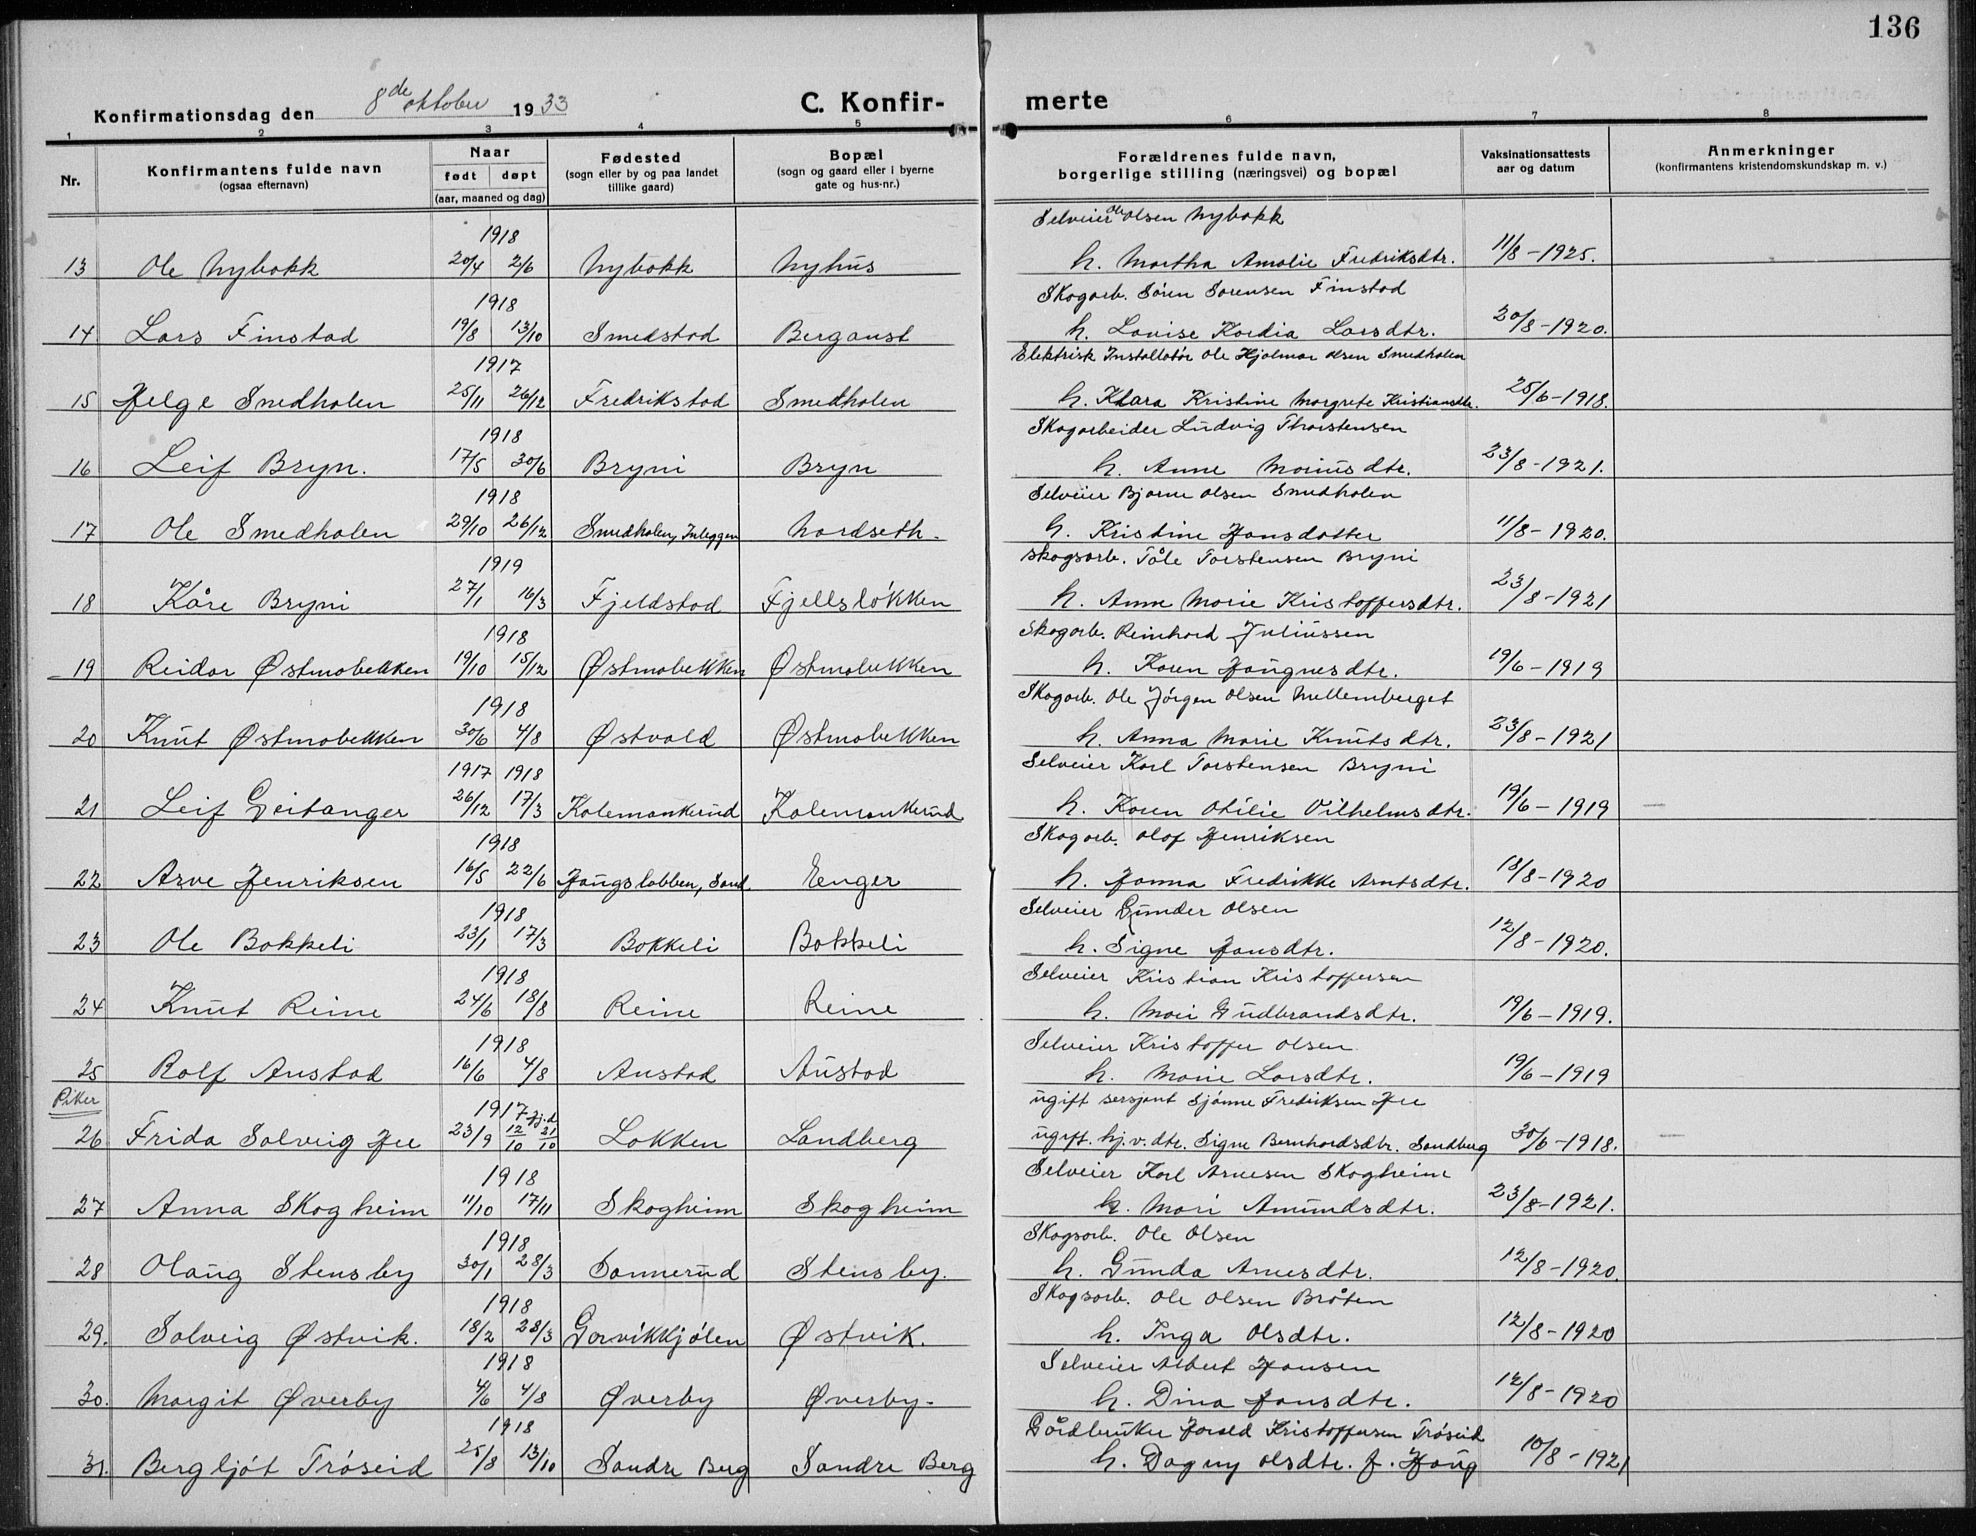 136
Konfirmationsdag den 8de oktober 1933 C. Konfir- merte
1 2 3 4 5 6 7 8
Nr. Konfirmantens fulde navn (ogsaa efternavn) Naar født døpt (aar, maaned og dag) Fødested (sogn eller by og paa landet tillike gaard) Bopæl (sogn og gaard eller i byerne gate og hus-nr.) Forældrenes fulde navn, borgerlige stilling (næringsvei) og bopæl Vaksinationsattests aar og datum Anmerkninger (konfirmantens kristendomskundskap m. v.)
1918 Selveier Ole Olsen Nybakk
13 Ole Nybakk 20/4 2/6 Nybakk Nyhus h. Martha Amalie Fredriksdtr. 11/8-1925.
1918 Skogarb. Søren Sorensen Finstad
14 Lars Finstad 19/8 13/10 Smedstad Bergaust h. Lovise Kordia Larsdtr. 20/8-1920.
1917 Elektrisk Installatör Ole Hjalmar Olsen Smedholen
15 Helge Smedholen 25/11 26/12 Fredrikstad Smedholen h. Klara Kristine Margrete Kristiansdtr. 25/6-1918.
1918 Skogarbeider Ludvig Thorstensen
16 Leif Bryn. 17/5 30/6 Bryni Bryn h. Anne Mariusdtr. 23/8-1921.
1918 Selveier Bjarne Olsen Smedholen
17 Ole Smedholen 29/10 26/12 Smedholen, Inleggen Nordseth. h. Kristine Hansdatter 11/8-1920.
1919 Skogsarb. Tåle Torstensen Bryni
18 Kåre Bryni 27/1 16/3 Fjeldstad Fjellsløkken h. Anne Marie Kristoffersdtr. 23/8-1921
1918 Skogarb. Reinhard Juliussen
19 Reidar Østmobekken 19/10 15/12 Østmobekken Østmobekken h. Karen Haugnesdtr. 19/6-1919
1918 Skogarb. Ole Jörgen Olsen Mellemberget
20 Knut Østmobekken 30/6 4/8 Østvold Østmobekken h. Anna Marie Knutsdtr. 23/8-1921
1917 1918 Selveier Karl Torstensen Bryni
21 Leif Geitanger 26/12 17/3 Kolemonkerud Kolemonkerud h. Karen Otilie Vilhelmsdtr. 19/6-1919
1918 Skogarb. Olaf Henriksen
22 Arve Henriksen 16/5 22/6 Haugslobben, Sand Enger h. Hanna Fredrikke Arntsdtr. 18/8-1920
1918 Selveier Gunder Olsen
23 Ole Bakkeli 23/1 17/3 Bakkeli Bakkeli h. Signe Hansdtr. 12/8-1920.
1918 Selveier Kristian Kristoffersen
24 Knut Reine 24/6 18/8 Reine Reine h. Mari Gudbrandsdtr. 19/6-1919.
1918 Selveier Kristoffer Olsen
25 Rolf Austad 16/6 4/8 Austad Austad h. Marie Larsdtr. 19/6-1919
Piker 1917 hj.d. ugift sersjant Sjönne Fredriksen Hee
26 Frida Solveig Hee 23/9 12/10 21/10 Løkken Sandberg ugift. hj.v.dtr. Signe Bernhardsdtr. Sandberg 30/6-1918.
1918 Selveier Karl Arnesen Skogheim
27 Anna Skogheim 11/10 17/11 Skogheim Skogheim h. Mari Amundsdtr. 23/8-1921.
1918 Skogsarb. Ole Olsen
28 Olaug Stensby 30/1 28/3 Sannerud Stensby. h. Gunda Arnesdtr. 12/8-1920.
1918 Skogsarb. Ole Olsen Bråten
29. Solveig Østvik. 18/2 28/3 Gorvikkjølen Østvik. h. Inga Olsdtr. 12/8-1920
1918 Selveier Albert Hansen
30. Margit Øverby 4/6 4/8 Øverby Øverby. h. Dina Hansdtr. 12/8-1920
1918 Gårdbruker Harald Kristoffersen Trøseid
31. Bergljót Trøseid 25/8 13/10 Søndre Berg Søndre Berg h. Dagny Olsdtr. f. Haug 10/8-1921